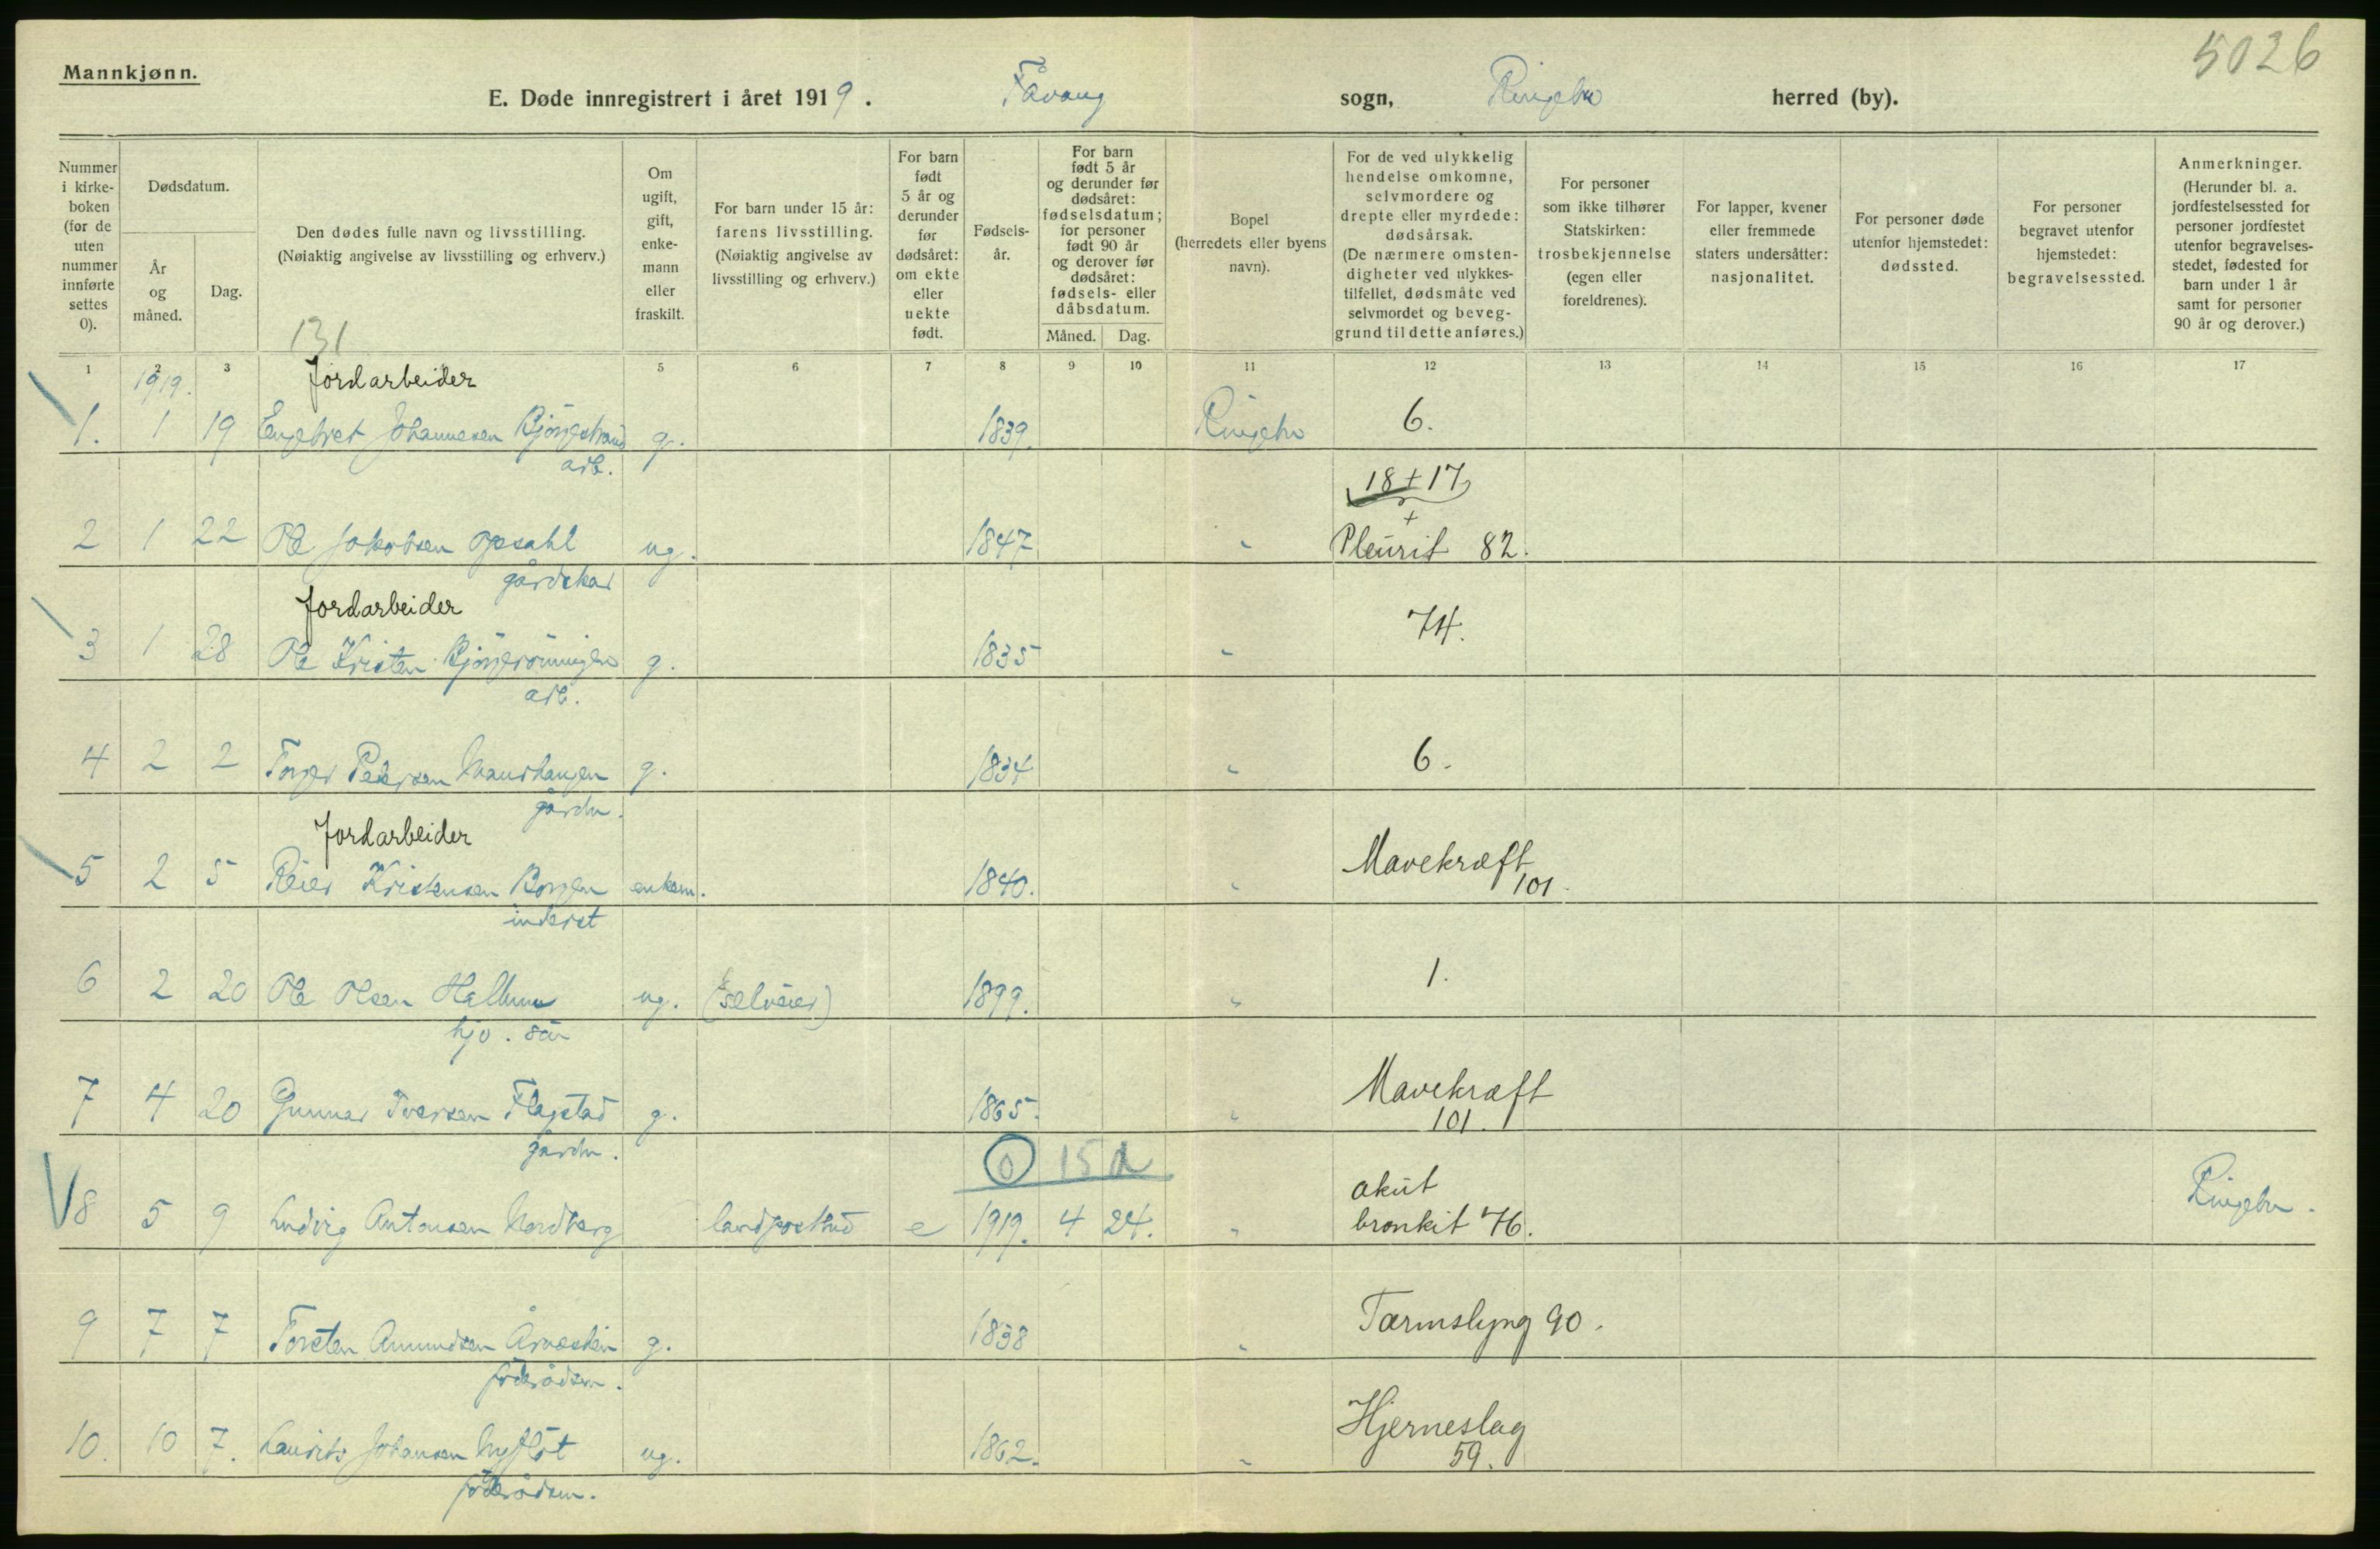 5026
Mannkjønn.
E. Døde innregistrert i året 1919. Fåvang sogn, Ringebu herred (by).
Nummer i kirke- boken (for de uten nummer innførte settes 0).
Dødsdatum.
År og måned.
Dag.
Den dødes fulle navn og livsstilling.
(Nøiaktig angivelse av livsstilling og erhverv.)
131
Om ugift, gift, enke- mann eller fraskilt.
For barn under 15 år: farens livsstilling. (Nøiaktig angivelse av livsstilling og erhverv.)
For barn født 5 år og derunder før dødsåret: om ekte eller uekte født.
Fødsels- år.
For barn født 5 år og derunder før dødsåret: fødselsdatum; for personer født 90 år og derover før dødsåret: fødsels- eller dåbsdatum.
Måned. Dag.
Bopel (herredets eller byens navn).
For de ved ulykkelig hendelse omkomne, selvmordere og drepte eller myrdede: dødsårsak. (De nærmere omsten- digheter ved ulykkes- tilfellet, dødsmåte ved selvmordet og beveg- grund til dette anføres.)
For personer som ikke tilhører Statskirken: trosbekjennelse (egen eller foreldrenes).
For lapper, kvener eller fremmede staters undersåtter: nasjonalitet.
For personer døde utenfor hjemstedet: dødssted.
For personer begravet utenfor hjemstedet: begravelsessted.
Anmerkninger. (Herunder bl. a. jordfestelsessted for personer jordfestet utenfor begravelses- stedet, fødested for barn under 1 år samt for personer 90 år og derover.)
1 2 3 5 6 7 8 9 10 11 12 13 14 15 16 17
1919. Jordarbeider
1. 1 19 Engebret Johannesen Bjørgestrand g. 1839. Ringebu 6.
arb.
18 + 17
+
2 1 22 Ole Jakobsen Opsahl ug. 1847 " Pleurit 82.
gårdskar
Jordarbeider
3 1 28 Ole Kristen Bjørgerønningen g. 1835 " 74.
arb.
4 2 2 Torger Pedersen g. 1834 " 6.
gårdbr.
Jordarbeider
5 2 5 Reier Kristensen Borgen enkem. 1840. " Mavekræft 101.
inderst
6 2 20 Ole Olsen ug. (selveier) 1899. " 1.
hjv. søn
7 4 20 Gunnar Iversen Flagstad g. 1865. " Mavekræft
101.
gårdbr.
0 15 d
8 5 9 Ludvig Antonsen Nordberg landpostbud e 1919. 4 24. " akut bronkit 76. Ringebu.
9 7 7 Torsten Amundsen g. 1838 " Tarmslyng 90.
føderådsm.
10. 10 7. Laurits Johansen Nyfløt ug. 1862. " Hjerneslag
59.
føderådsm.